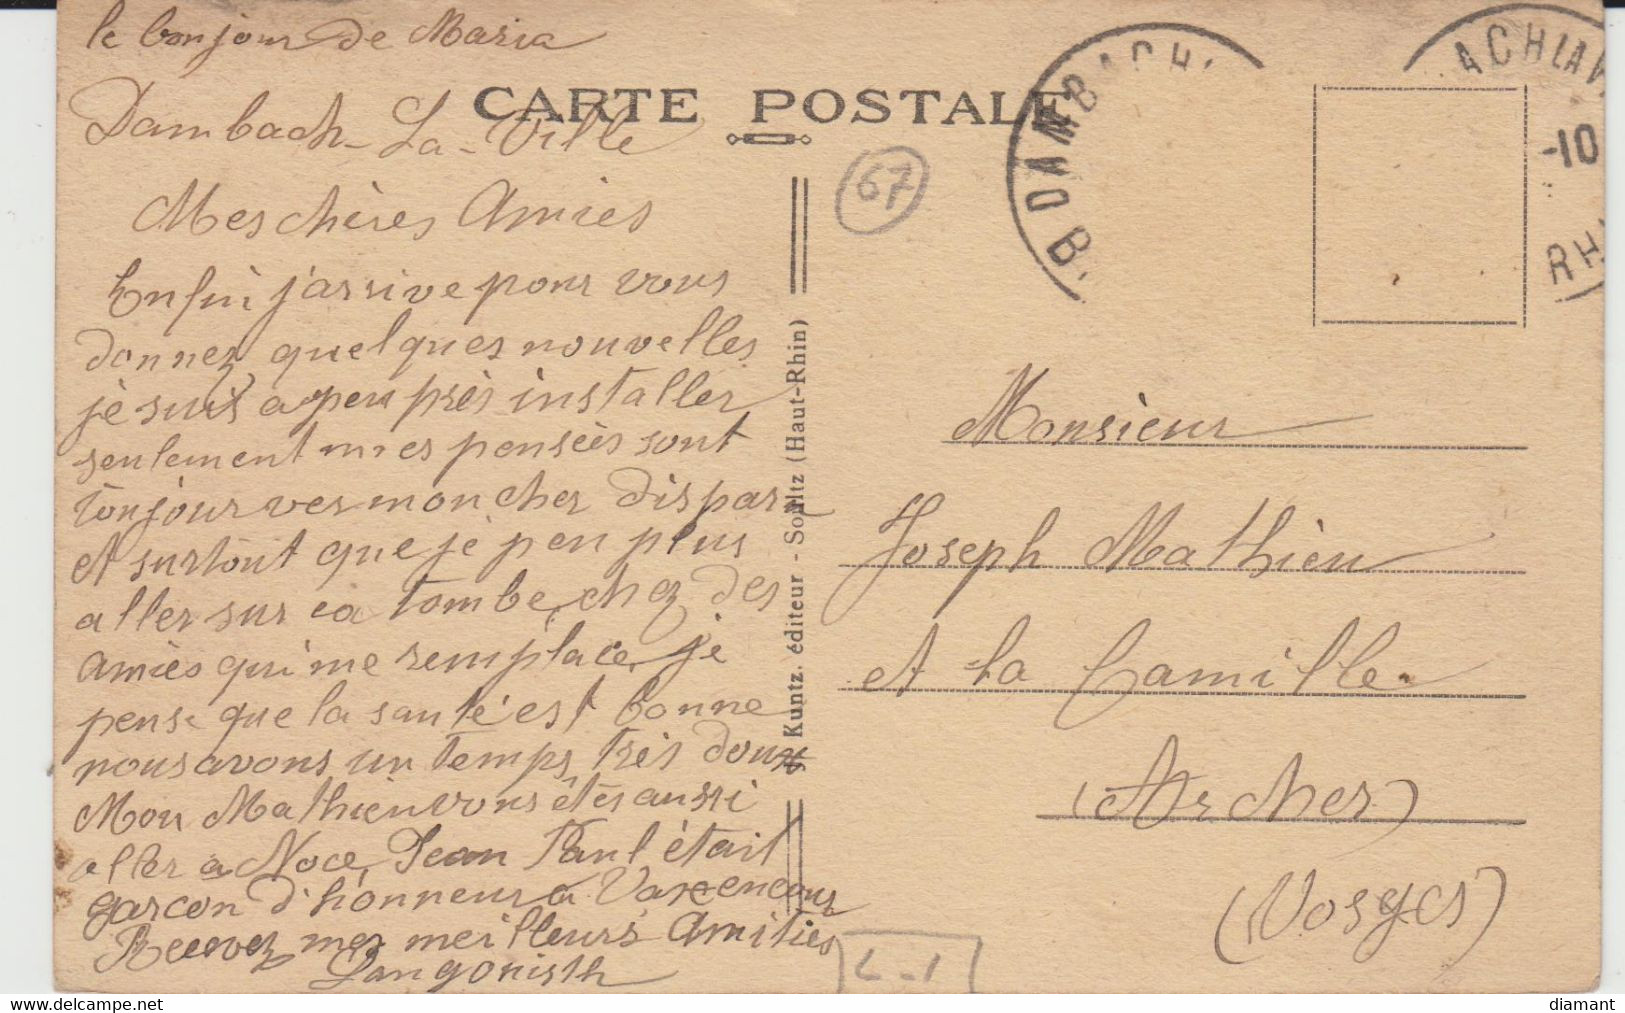 le bonjour de Maria
CARTE POSTALE
Dambach-La-Ville
67
Mes chères Amies
Enfin j'arrive pour vous
donnez quelques nouvelles
je suis a peu près installer
seulement mes pensées sont
toujour ver mon cher disparu
et surtout que je peu plus
aller sur sa tombe, chez des
amies qui me remplace, je
pense que la santé est bonne
nous avons un temps très doux
Mon Mathieu vous étés aussi
aller a Noce, Jean Paul était
garcon d'honneur a
Recevez mes meilleurs Amitiés
Kuntz. éditeur - Soultz (Haut-Rhin)
DAMBACH
B.
ACHLAV
-10
RH
Monsieur
Joseph Mathieu
et la Camille
(Archer)
(Vosges)
L-1
le bon coin de la carte
diamant